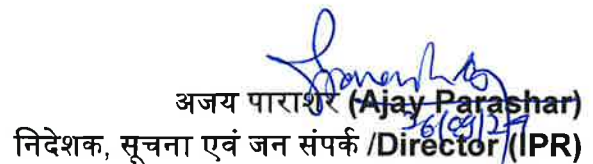 अजय पाराशर (Ajay Parashar)
निदेशक, सूचना एवं जन संपर्क /Director (IPR)